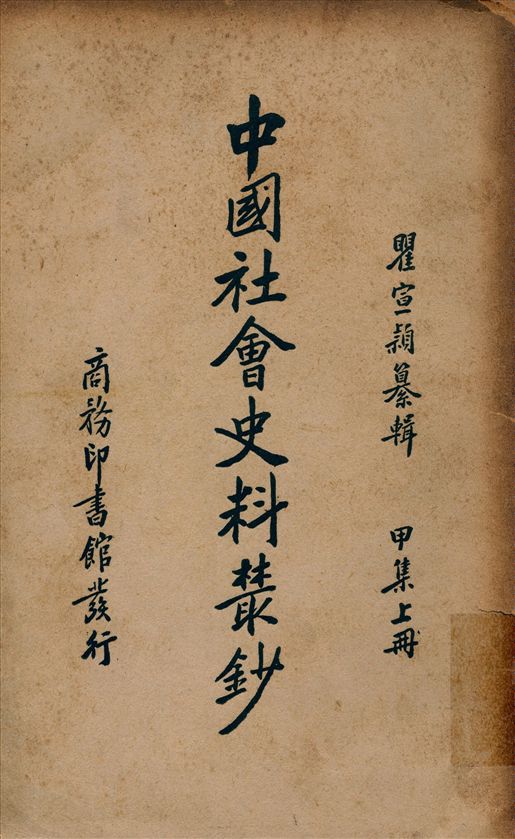 瞿宣穎纂輯 甲集上冊
中國社會史料叢鈔
商務印書館發行